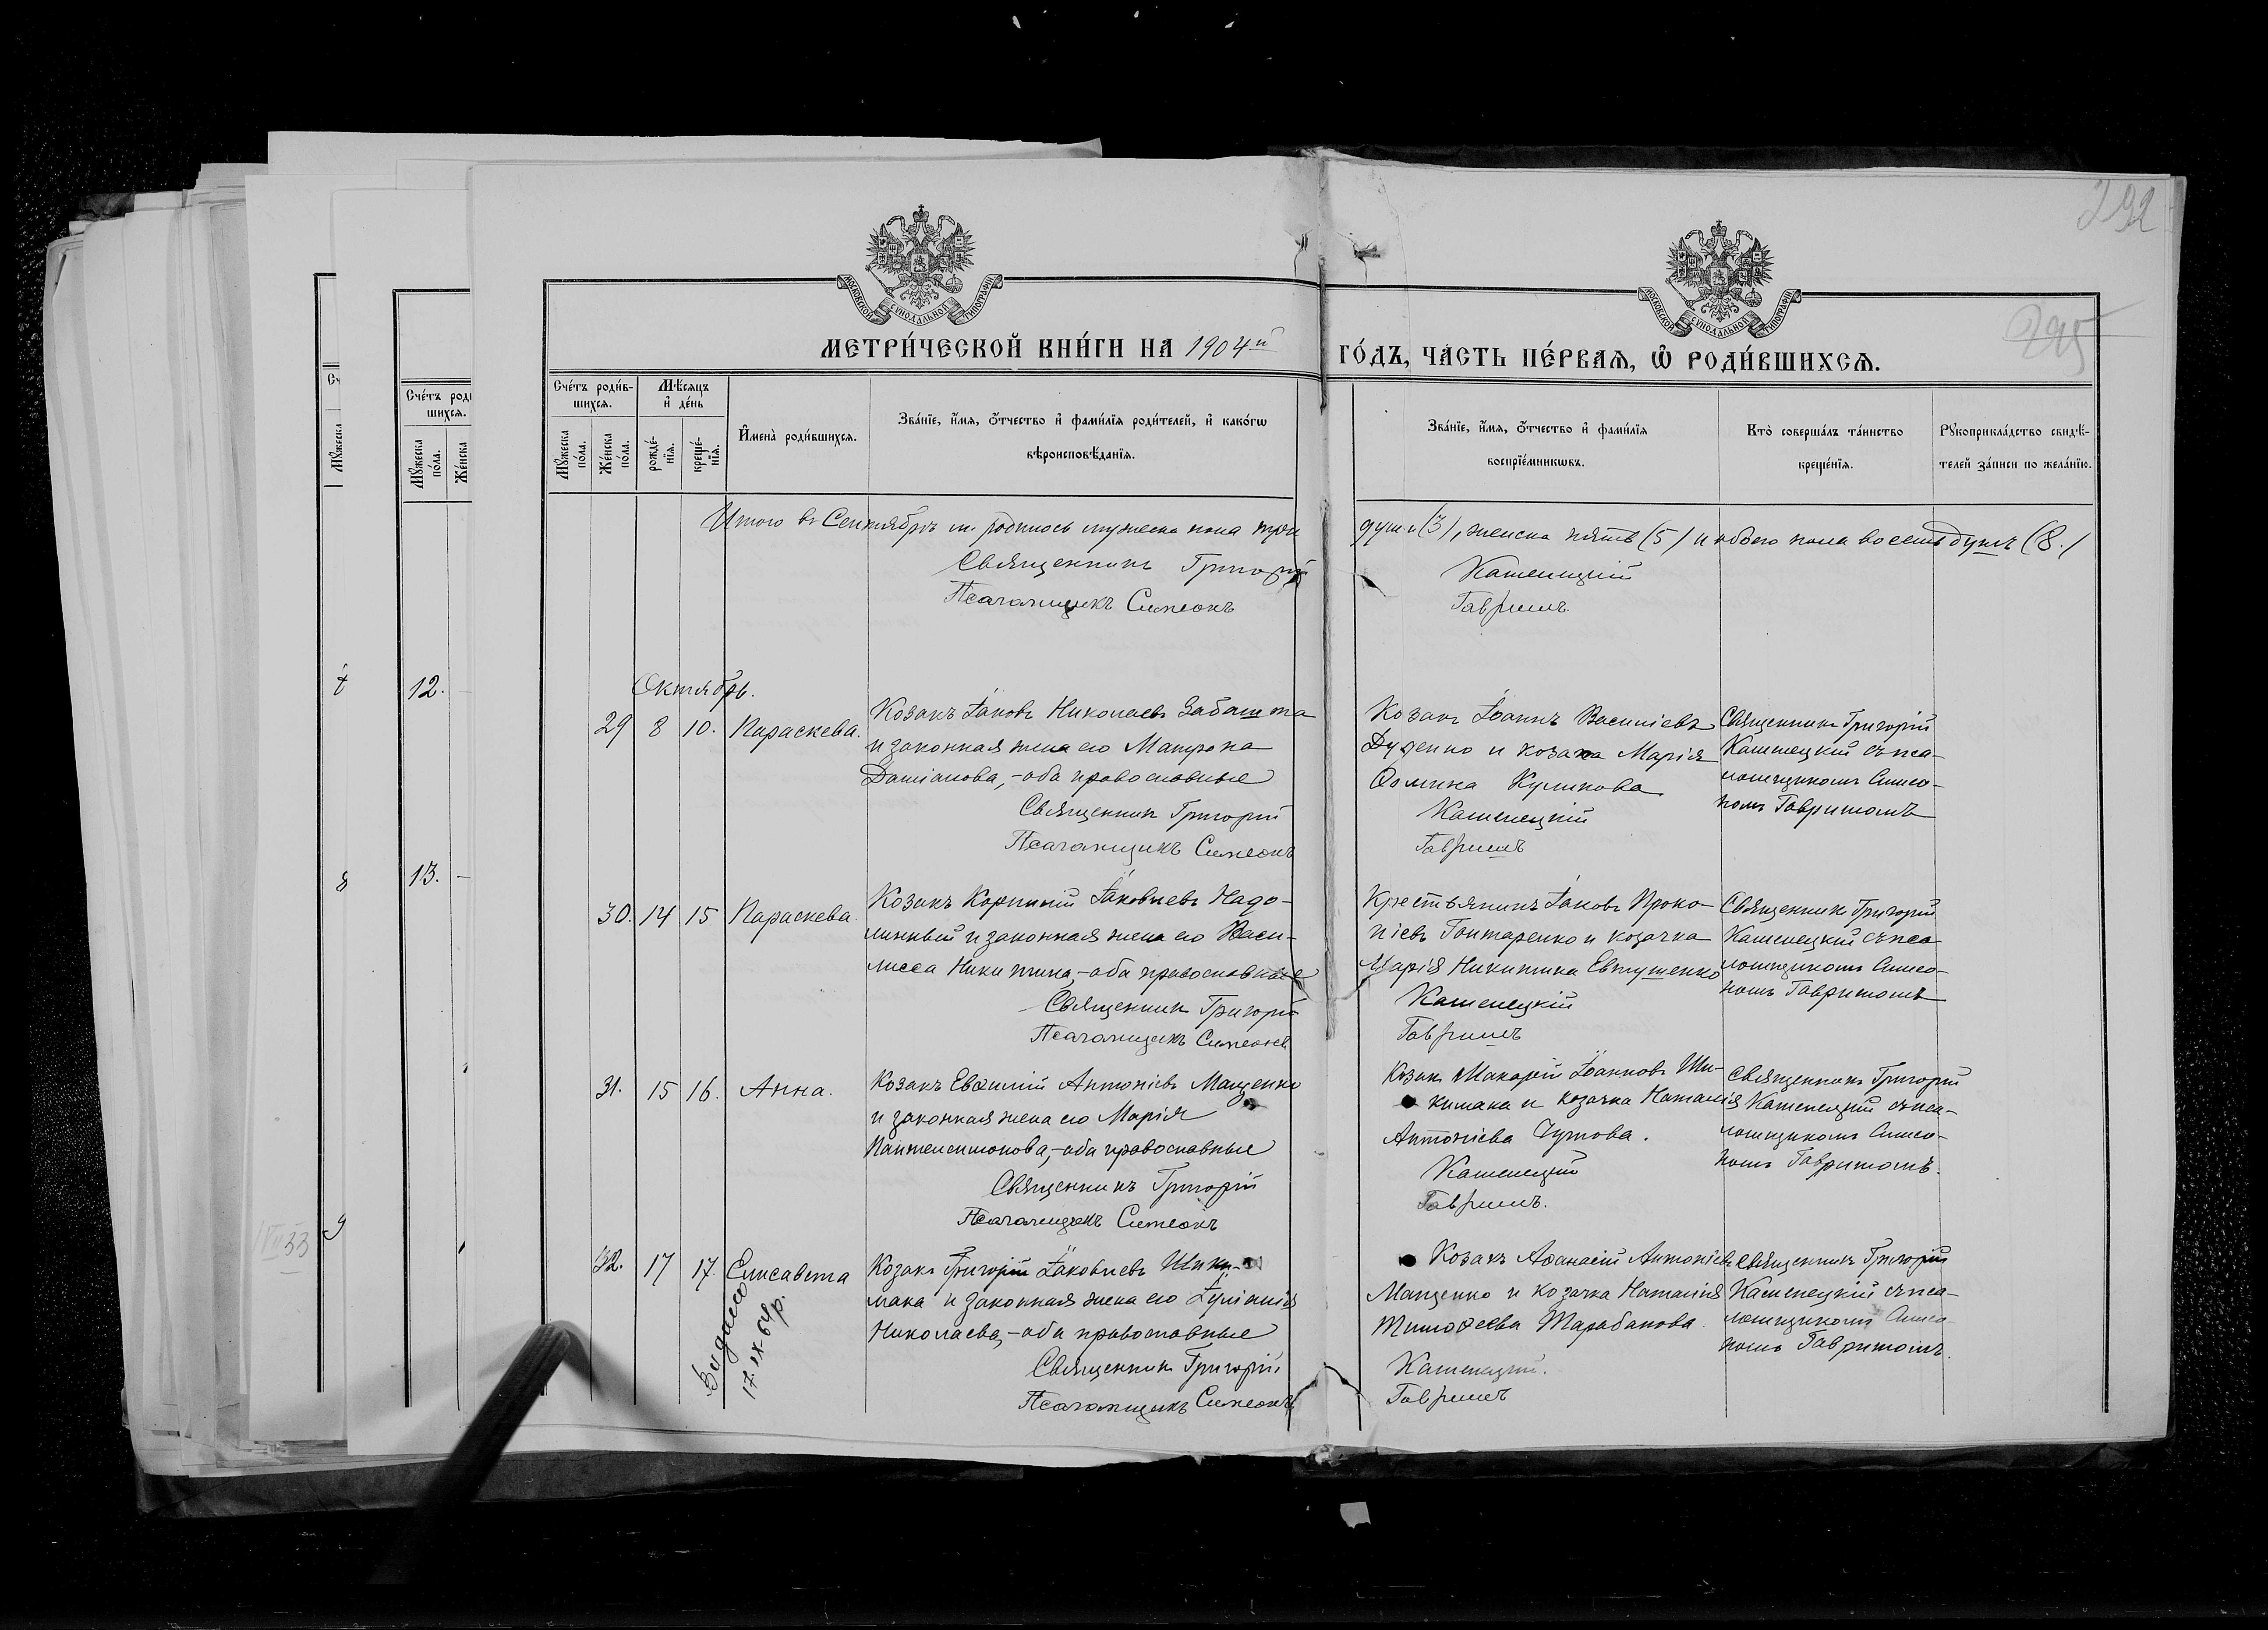 292
295
МОСКОВСКОЙ СУНОДАЛЬНОЙ ТИПОГРАФІИ
МОСКОВСКОЙ СУНОДАЛЬНОЙ ТИПОГРАФІИ
МЕТРИ́ЧЕСКОЙ КНИ́ГИ НА 1904й ГО́ДЪ, ЧА́СТЬ ПЕ́РВАЯ, Ѡ РОДИ́ВШИХСЯ.
Сче́тъ роди́в-
шихся.
Мѣ́сяцъ
и҆ де́нь
Мꙋ́жеска
по́ла.
Же́нска
по́ла.
рожде́-
нїя.
креще́-
нїя.
И҆мена̀ роди́вшихся.
Зва́нїе, и҆́мя, ѻ҆́тчество и҆ фами́лїя роди́телей, и҆ како́гѡ
вѣроисповѣ́данїя.
Зва́нїе, и҆́мя, ѻ҆́тчество и҆ фами́лїя
воспрїе́мникѡвъ.
Кто̀ соверша́лъ та́инство
креще́нїя.
Рꙋкоприкла́дство свидѣ́-
телей за́писи по жела́нїю.
Итого въ Сентябрѣ м. родилось мужеска пола три души (3), женска пять (5) и обоего пола восемь душъ (8.)
Священникъ Григорій Каменецкій
Псаломщикъ Симеонъ Гавришъ.
Октябрь.
29 8 10. Параскева.
Козакъ Іаковъ Николаевъ Забашта
и законная жена его Матрона
Даміанова,-оба православные
Священникъ Григорій
Псаломщикъ Симеонъ
Козакъ Іоаннъ Василіевъ
Дуденко и козачка Марія
Ѳомина Куликова
Каменецкій
Гавришъ
Священникъ Григорій
Каменецкій съ пса-
ломщикомъ Симео-
номъ Гавришомъ
30. 14 15 Параскева.
Козакъ Корнилій Іаковлевъ Надо-
линный и законная жена его Васи-
лисса Никитина,-оба православные
Священникъ Григорій
Псаломщикъ Симеонъ
Крестьянинъ Іаковъ Проко-
піевъ Гонтаренко и козачка
Марія Никитина Евтушенко
Каменецкій
Гавришъ
Священникъ Григорій
Каменецкій съ пса-
ломщикомъ Симео-
номъ Гавришомъ
31. 15 16. Анна.
Козакъ Евѳимій Антоніевъ Маценко
и законная жена его Марія
Пантелеимонова,-оба православные
Священникъ Григорій
Псаломщикъ Симеонъ
Козакъ Макарій Іоанновъ Ши-
кимака и козачка Наталія
Антоніева Чутова.
Каменецкій
Гавришъ.
Священникъ Григорій
Каменецкій съ пса-
ломщикомъ Симео-
номъ Гавришомъ.
32. 17 17. Елисавета
Видано
17.IX-64р.
Козакъ Григорій Іаковлевъ Шики-
мака и законная жена его Іуліанія
Николаева,-оба православные
Священникъ Григорій
Псаломщикъ Симеонъ
Козакъ Аѳанасій Антоніевъ
Маценко и козачка Наталія
Тимоѳеева Тарабанова
Каменецкій.
Гавришъ
Священникъ Григорій
Каменецкій съ пса-
ломщикомъ Симео-
номъ Гавришомъ.
Сч
Мꙋ́жеска
8
9
Сче́тъ роди
шихся.
Мꙋ́жеска
по́ла.
Же́нска
12.
13.